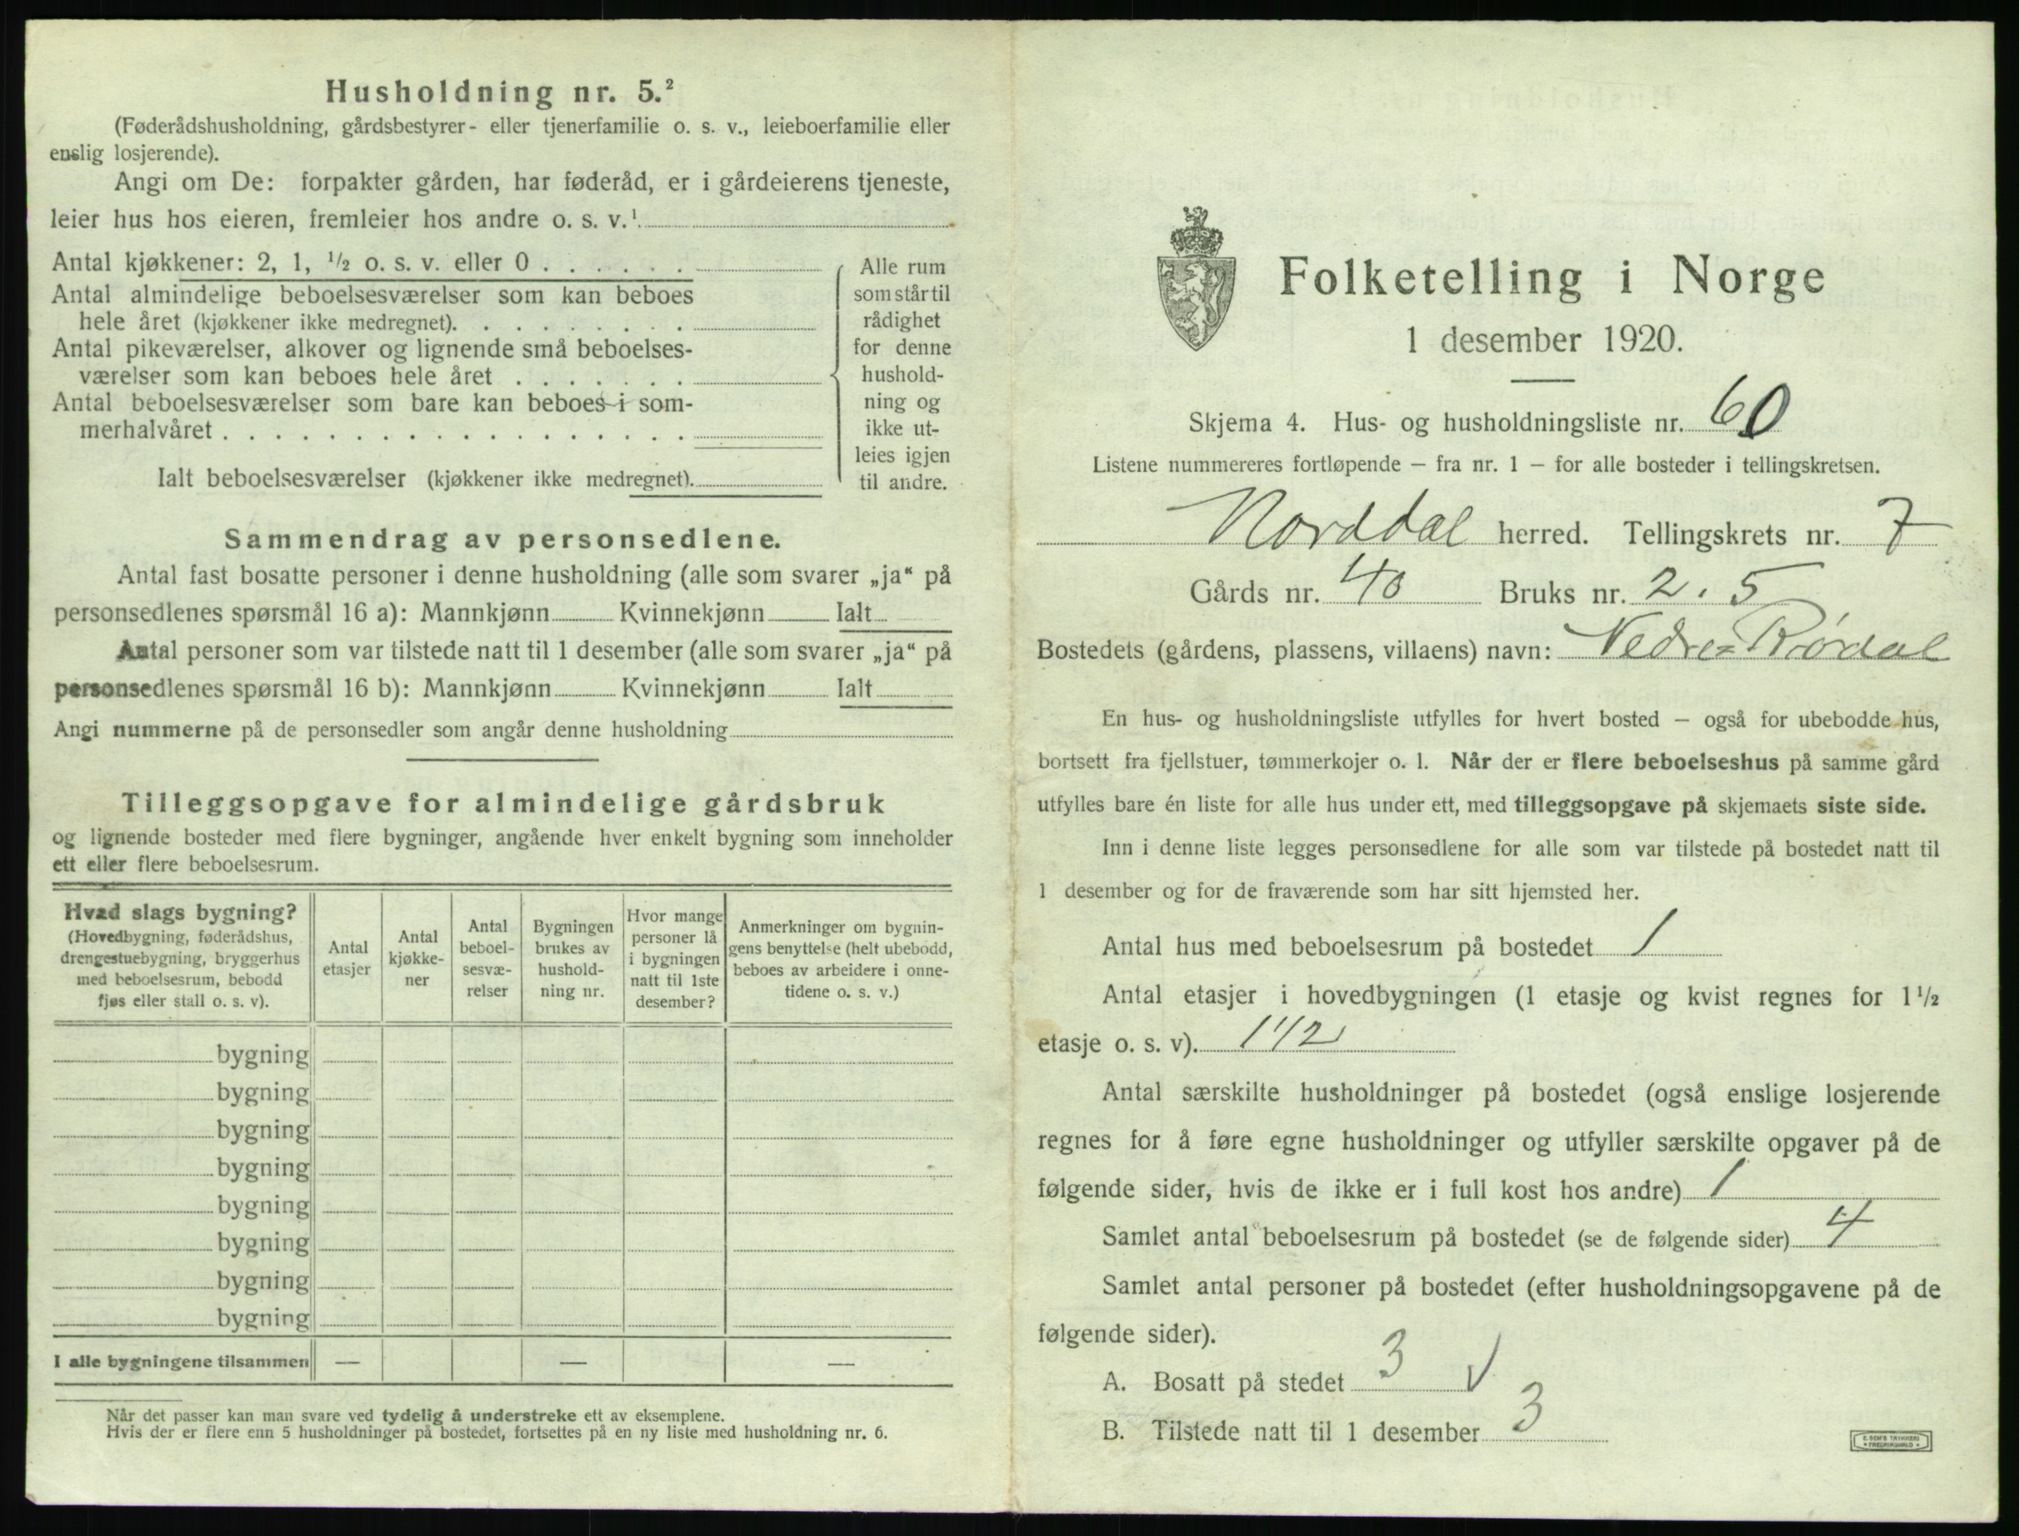 Husholdning nr. 5.²
(Føderådshusholdning, gårdsbestyrer- eller tjenerfamilie o. s. v., leieboerfamilie eller
enslig losjerende).
Angi om De: forpakter gården, har føderåd, er i gårdeierens tjeneste,
leier hus hos eieren, fremleier hos andre o. s. v.¹
Antal kjøkkener: 2, 1, ½ o. s. v. eller 0 . . . . . .
Antal almindelige beboelsesværelser som kan beboes
hele året (kjøkkener ikke medregnet). . . . . . . . .
Antal pikeværelser, alkover og lignende små beboelses-
værelser som kan beboes hele året . . . . . . .
Antal beboelsesværelser som bare kan beboes i som-
merhalvåret . . . . . . . . . . . . . . . . .
Ialt beboelsesværelser (kjøkkener ikke medregnet).
Alle rum
som står til
rådighet
for denne
hushold-
ning og
ikke ut-
leies igjen
til andre.
Sammendrag av personsedlene.
Antal fast bosatte personer i denne husholdning (alle som svarer „ja“ på
personsedlenes spørsmål 16 a): Mannkjønn Kvinnekjønn Ialt
Antal personer som var tilstede natt til 1 desember (alle som svarer „ja“ på
personsedlenes spørsmål 16 b): Mannkjønn Kvinnekjønn Ialt
Angi nummerne på de personsedler som angår denne husholdning
Tilleggsopgave for almindelige gårdsbruk
og lignende bosteder med flere bygninger, angående hver enkelt bygning som inneholder
ett eller flere beboelsesrum.
Hvad slags bygning?
(Hovedbygning, føderådshus,
drengestuebygning, bryggerhus
med beboelsesrum, bebodd
fjøs eller stall o. s. v).
Antal
etasjer
Antal
kjøkke-
ner
Antal
beboel-
sesvæ-
relser
Bygningen
brukes av
hushold-
ning nr.
Hvor mange
personer lå
i bygningen
natt til 1ste
desember?
Anmerkninger om bygnin-
gens benyttelse (helt ubebodd,
beboes av arbeidere i onne-
tidene o. s. v.)
bygning
bygning
bygning
bygning
bygning
bygning
bygning
bygning
I alle bygningene tilsammen — — —
Når det passer kan man svare ved tydelig å understreke ett av eksemplene.
Hvis der er flere enn 5 husholdninger på bostedet, fortsettes på en ny liste med husholdning nr. 6.
Folketelling i Norge
1 desember 1920.
Skjema 4. Hus- og husholdningsliste nr. 60
Listene nummereres fortløpende – fra nr. 1 – for alle bosteder i tellingskretsen.
Norddal herred. Tellingskrets nr. 7
Gårds nr. 40 Bruks nr. 2. 5
Bostedets (gårdens, plassens, villaens) navn: Nedre Rørdal
En hus- og husholdningsliste utfylles for hvert bosted – også for ubebodde hus,
bortsett fra fjellstuer, tømmerkojer o. l. Når der er flere beboelseshus på samme gård
utfylles bare én liste for alle hus under ett, med tilleggsopgave på skjemaets siste side.
Inn i denne liste legges personsedlene for alle som var tilstede på bostedet natt til
1 desember og for de fraværende som har sitt hjemsted her.
Antal hus med beboelsesrum på bostedet 1
Antal etasjer i hovedbygningen (1 etasje og kvist regnes for 1½
etasje o. s. v). 1 1/2
Antal særskilte husholdninger på bostedet (også enslige losjerende
regnes for å føre egne husholdninger og utfyller særskilte opgaver på de
følgende sider, hvis de ikke er i full kost hos andre) 1
Samlet antal beboelsesrum på bostedet (se de følgende sider) 4
Samlet antal personer på bostedet (efter husholdningsopgavene på de
følgende sider).
A. Bosatt på stedet 3 √
B. Tilstede natt til 1 desember 3